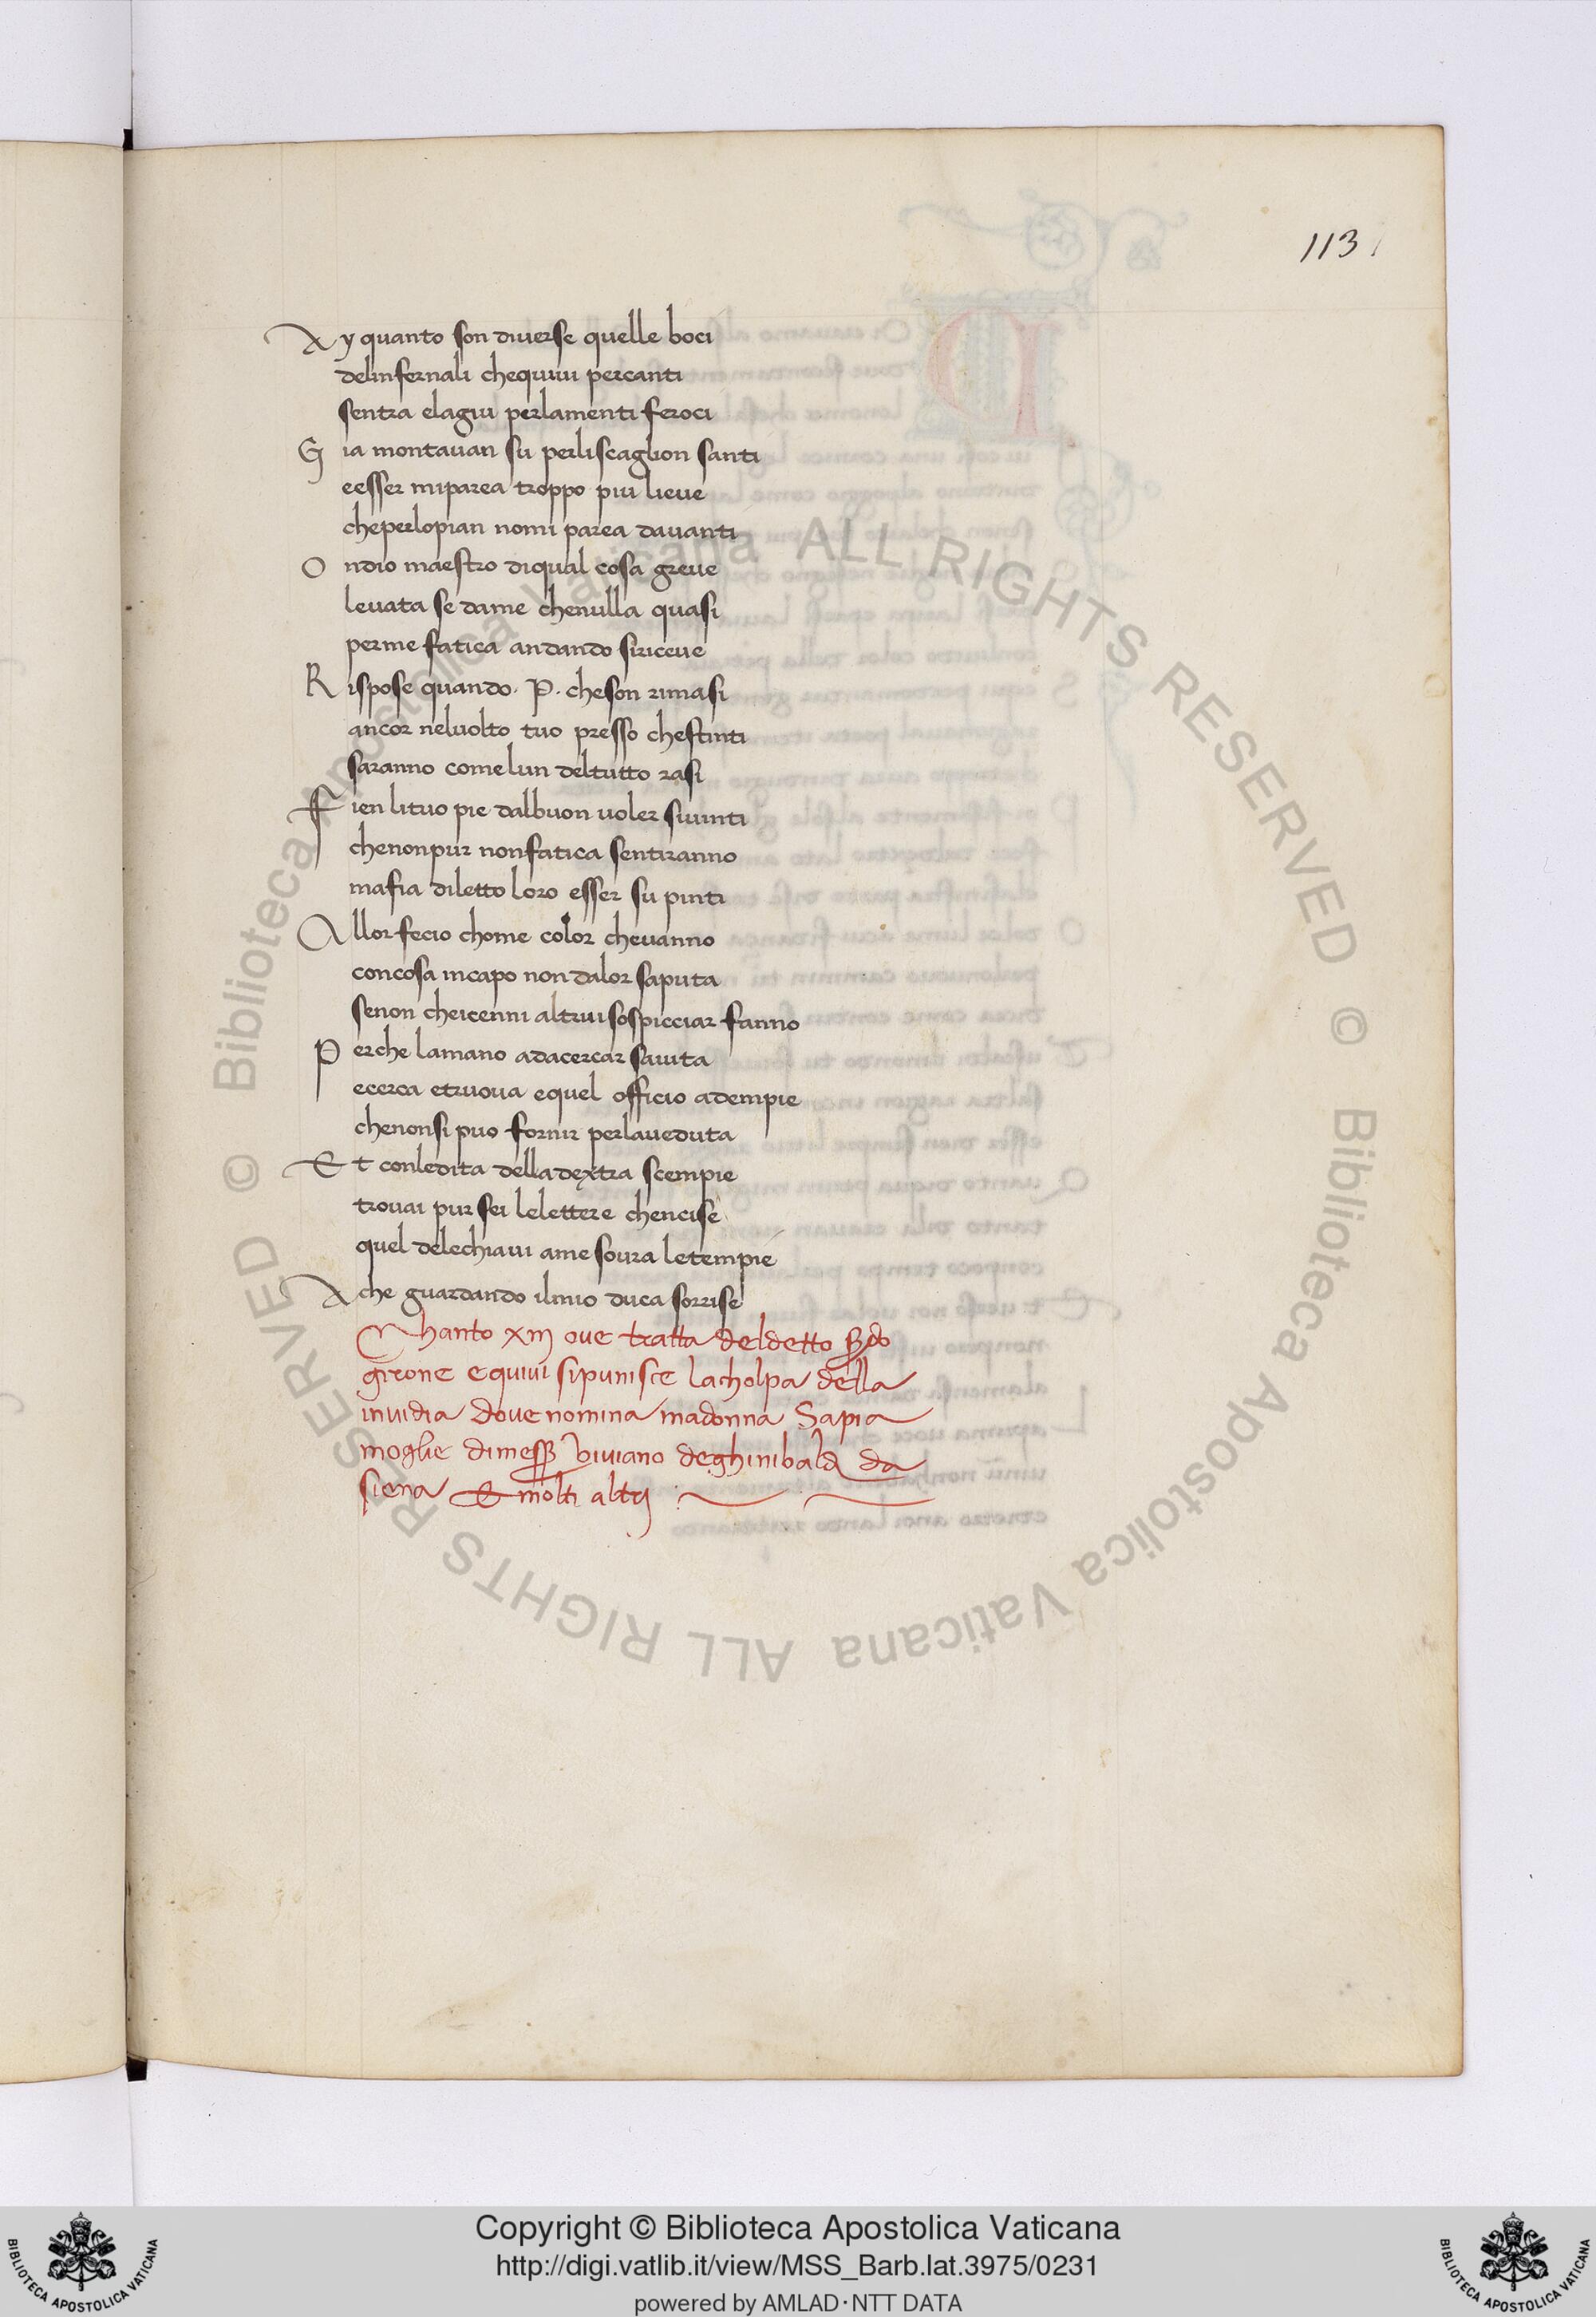 113
Ay quanto son diverse quelle boci
delinfernali chequivi percanti
sentra elagiu perlamenti feroci
Gia montavan su perliscaglion santi
eesser miparea troppo piu lieve
cheperlopian nomi parea davanti
Ondio maestro diqual cosa greve
levata se dame chenulla quasi
perme fatica andando siriceve
Rispose quando · P · cheson rimasi
ancor nelvolto tuo presso chestinti
saranno comelun deltutto rasi
Fien lituo pie dalbuon voler sivinti
chenonpur nonfatica sentiranno
mafia diletto loro esser su pinti
Allor fecio chome color chevanno
concosa incapo non dalor saputa
senon cheicenni altrui sospicciar fanno
Perche lamano adacercar saiuta
ecerca etruova equel officio adempie
chenonsi puo fornir perlaveduta
Et conledita delladextra scempie
trovai pur sei lelettere chencise
quel delechiavi ame sovra letempie
Ache guardando ilmio duca sorrise
Chanto xiii ove tratta deldetto
girone equivi sipunisce lacholpa della
invidia dove nomina madonna Sapia
moglie dimess viviano deghinibald da
siena Et molti altri
Copyright © Biblioteca Apostolica Vaticana
http://digi.vatlib.it/view/MSS_Barb.lat.3975/0231
powered by AMLAD·NTT DATA
BIBLIOTECA APOSTOLICA VATICANA
BIBLIOTECA APOSTOLICA VATICANA
© Biblioteca Apostolica Vaticana ALL RIGHTS RESERVED
© Biblioteca Apostolica Vaticana ALL RIGHTS RESERVED